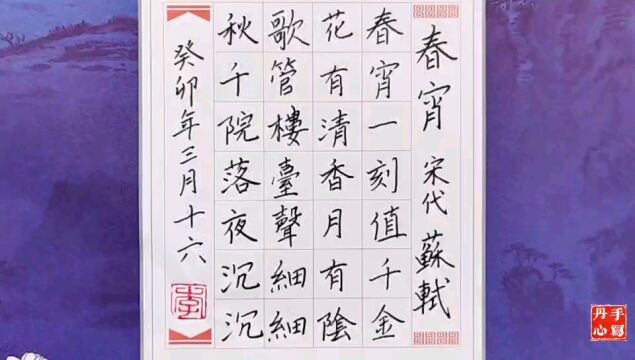 春宵 宋代 蘇軾
春宵一刻值千金
花有清香月有陰
歌管樓臺聲細細
秋千院落夜沉沉
癸卯年三月十六
李
手寫
丹心